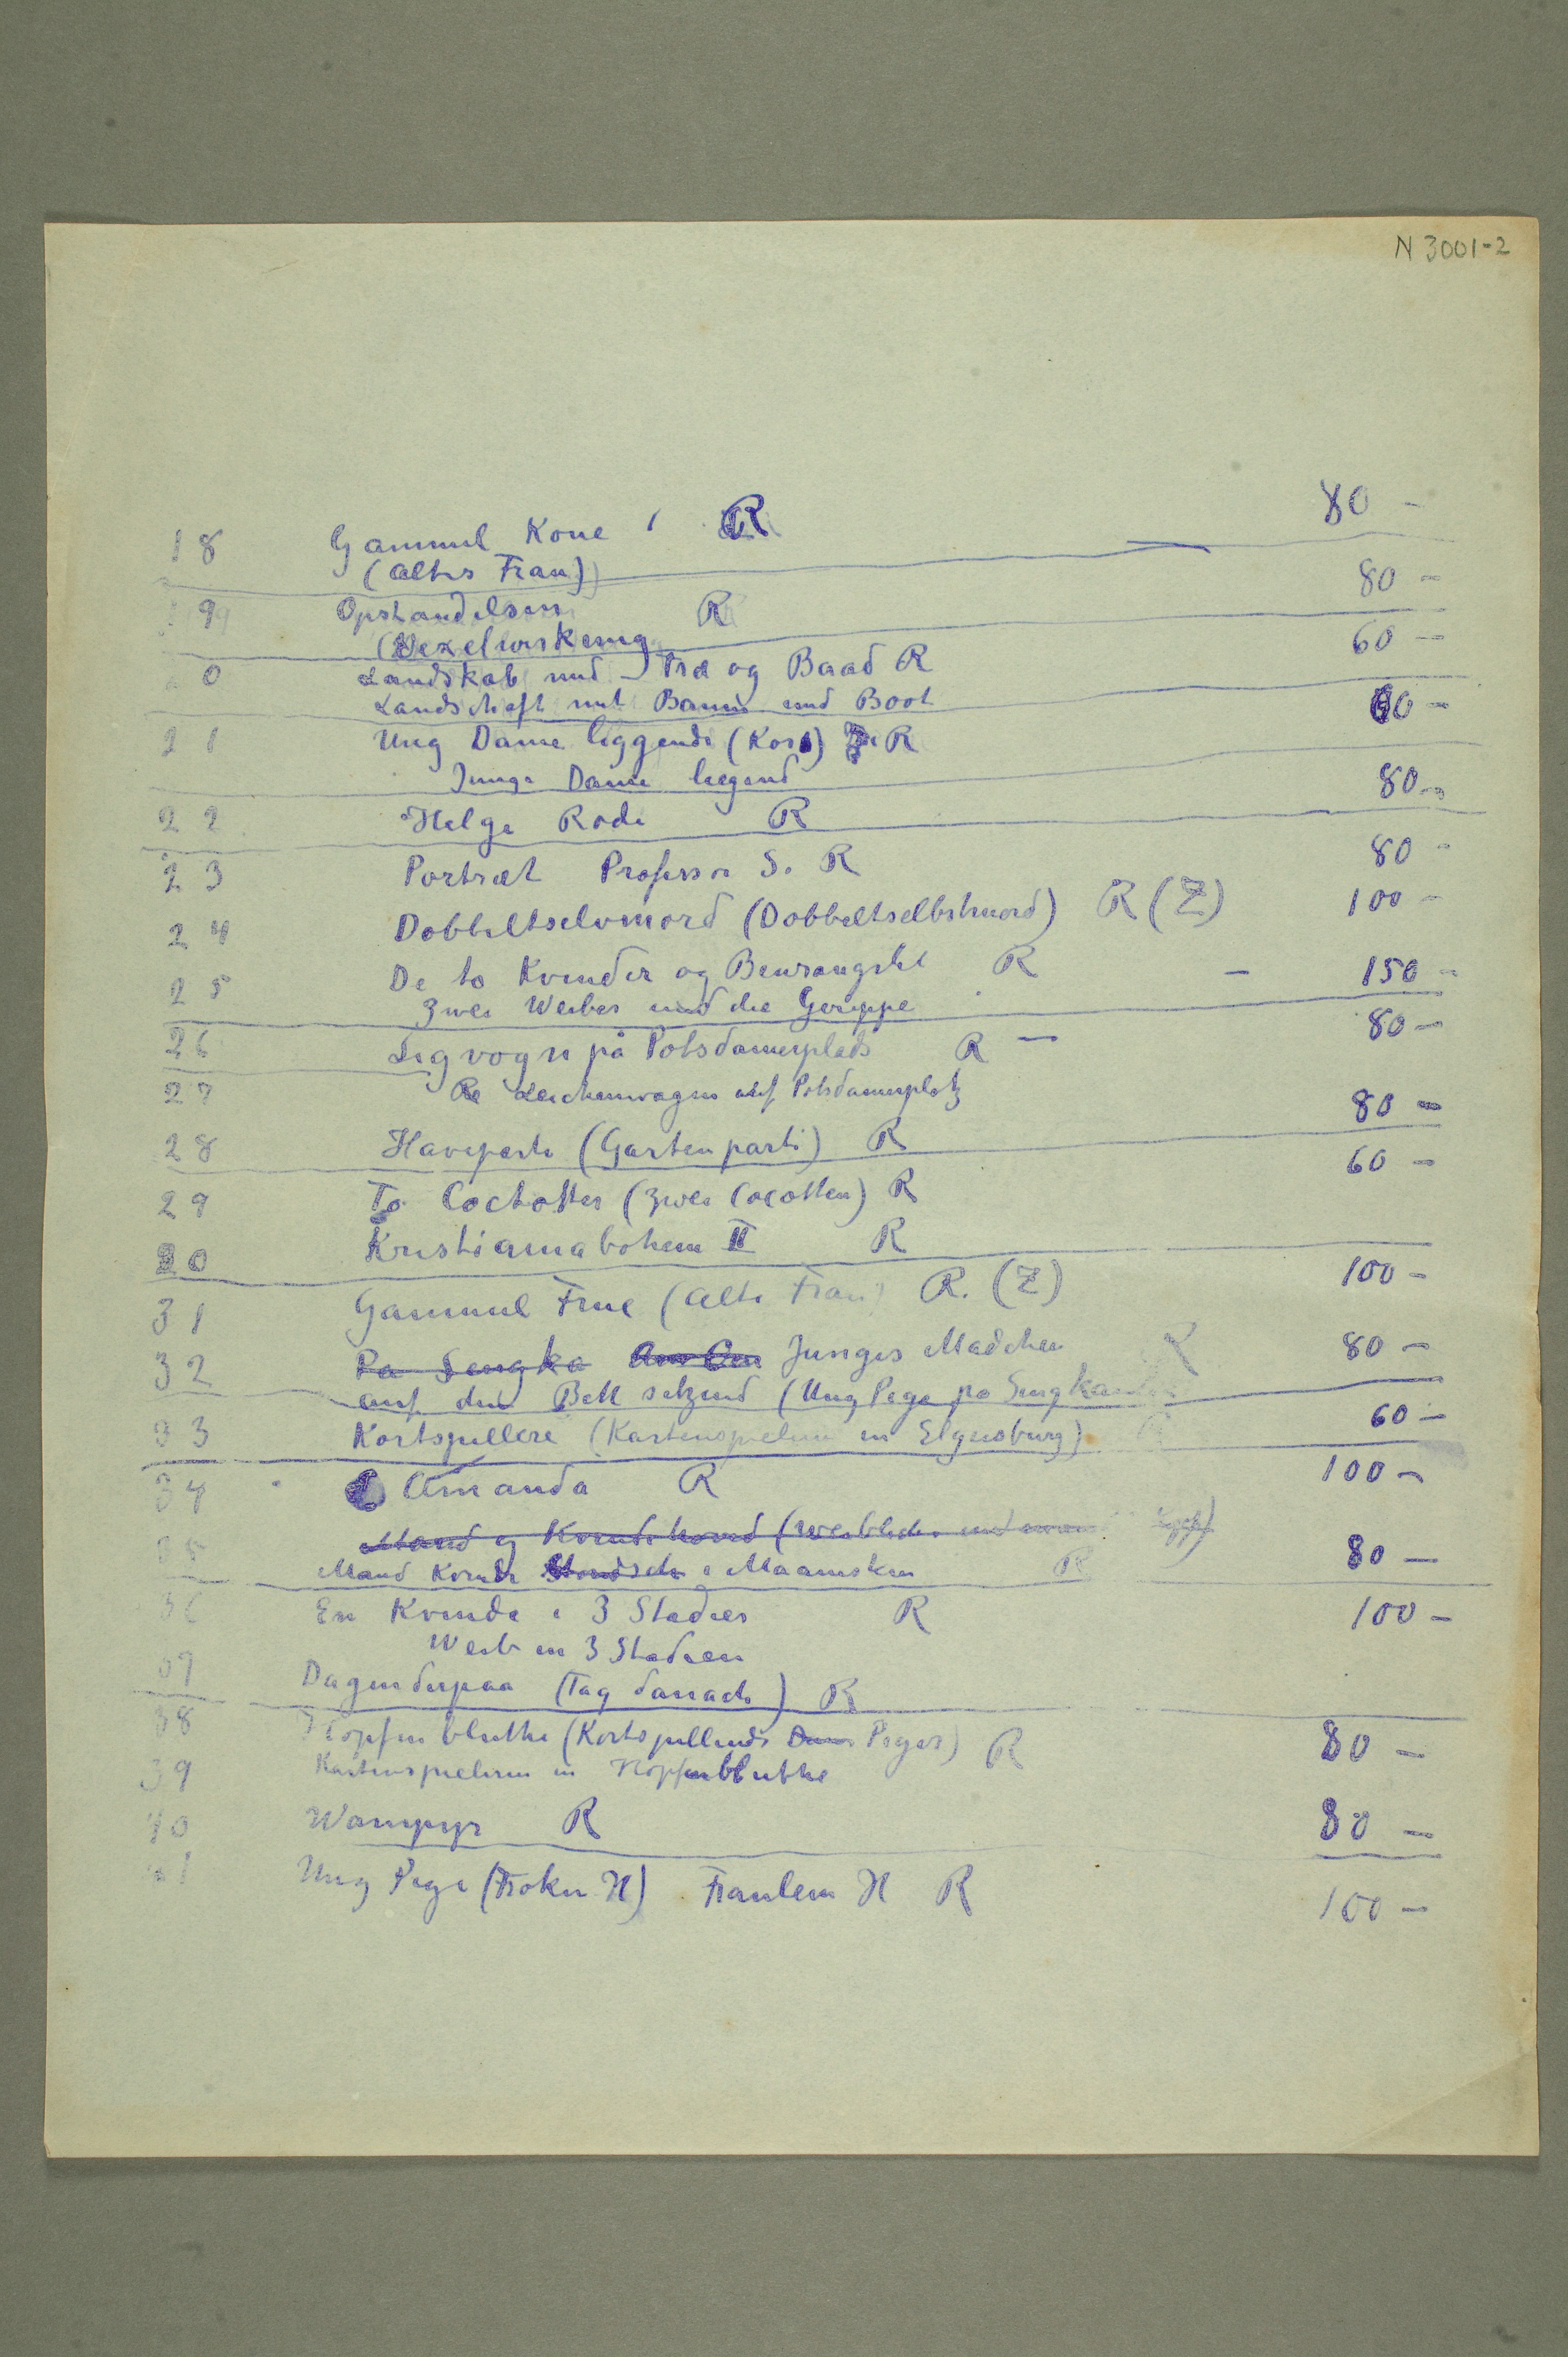 N 3001-2
18 Gammel Kone R 80 –
(Altes Frau)
19 Opstandelsen R 80 –
(Wexelwirkung
0 Landskab med Træ og Baad R 60 –
Landschaft mit Baum und Boot
21 Ung Dame liggende (Kors) R 60 –
Junge Dame liegend
22 Helge Rode R 80 –
23 Portræt Professor S. R 80 –
24 Dobbeltselvmord (Dobbeltselbstmord) R (Z) 100 –
25 De to Kvinder og Benrangelet R – 150 –
Zwei Weiber und die Gerippe
26 Ligvogn på Potsdamerplads R – 80 –
27 Leichenwagen auf Potsdamerplatz
28 Haveparti (Gartenparti) R 80 –
29 To Coctotter (zwei Cocotten) R 60 –
30 Kristianiabohem II R
31 Gammel Frue (Alte Frau) R. (Z) 100 –
32 Pa Sengka Junges Madchen R 80 –
auf dem Bett sitzend (Ung Pige pa Sengkanten
33 Kortspillere (Kartenspieler in Elgersburg) 60 –
34 Amanda R 100 –
Mand og Kvindehoved (Weibliche und
35 Mand Kvinde i Maaneskin R 80 –
36 En Kvinde i 3 Stadier R 100 –
Weib in 3 Stadien
37 Dagenderpaa (Tag danach) R
38 Hopfenbluthe (Kortspillende Piger) R 80 –
39 Kartenspielerin in Hopfenbluthe
40 Wampyr R 80 –
41 Ung Pige (Frøken H) Fraulein H R 100 –